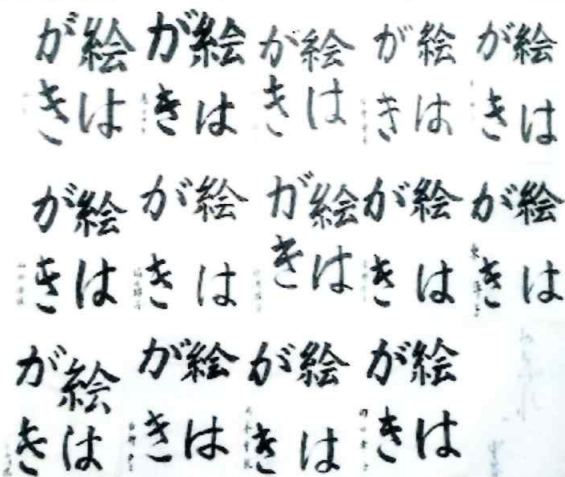 絵は
がき
絵は
がき
絵は
がき
絵は
がき
絵は
がき
絵は
がき
絵は
がき
絵は
がき
絵は
がき
絵は
がき
絵は
がき
絵は
がき
絵は
がき
絵は
がき